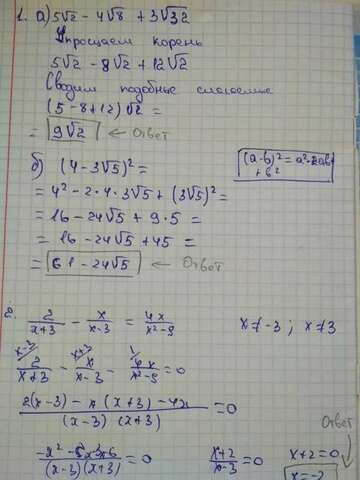 1. а) 5√2 - 4√8 + 3√32
Упрощаем корень
5√2 - 8√2 + 12√2
Сводим подобные слагаемые
(5 - 8 + 12)√2 =
= 9√2 ← Ответ
б) (4 - 3√5)² =
(a-b)² = a² - 2ab + b²
= 4² - 2·4·3√5 + (3√5)² =
= 16 - 24√5 + 9·5 =
= 16 - 24√5 + 45 =
= 61 - 24√5 ← Ответ
2. 2/(x+3) - x/(x-3) = 4x/(x²-9) x ≠ -3 ; x ≠ 3
x-3 x+3 1
2/(x+3) - x/(x-3) - 4x/(x²-9) = 0
(2(x-3) - x(x+3) - 4x)/((x-3)(x+3)) = 0
Ответ
/((x-3)(x+3)) = 0 (x+2)/(x-3) = 0 x+2=0
x=-2